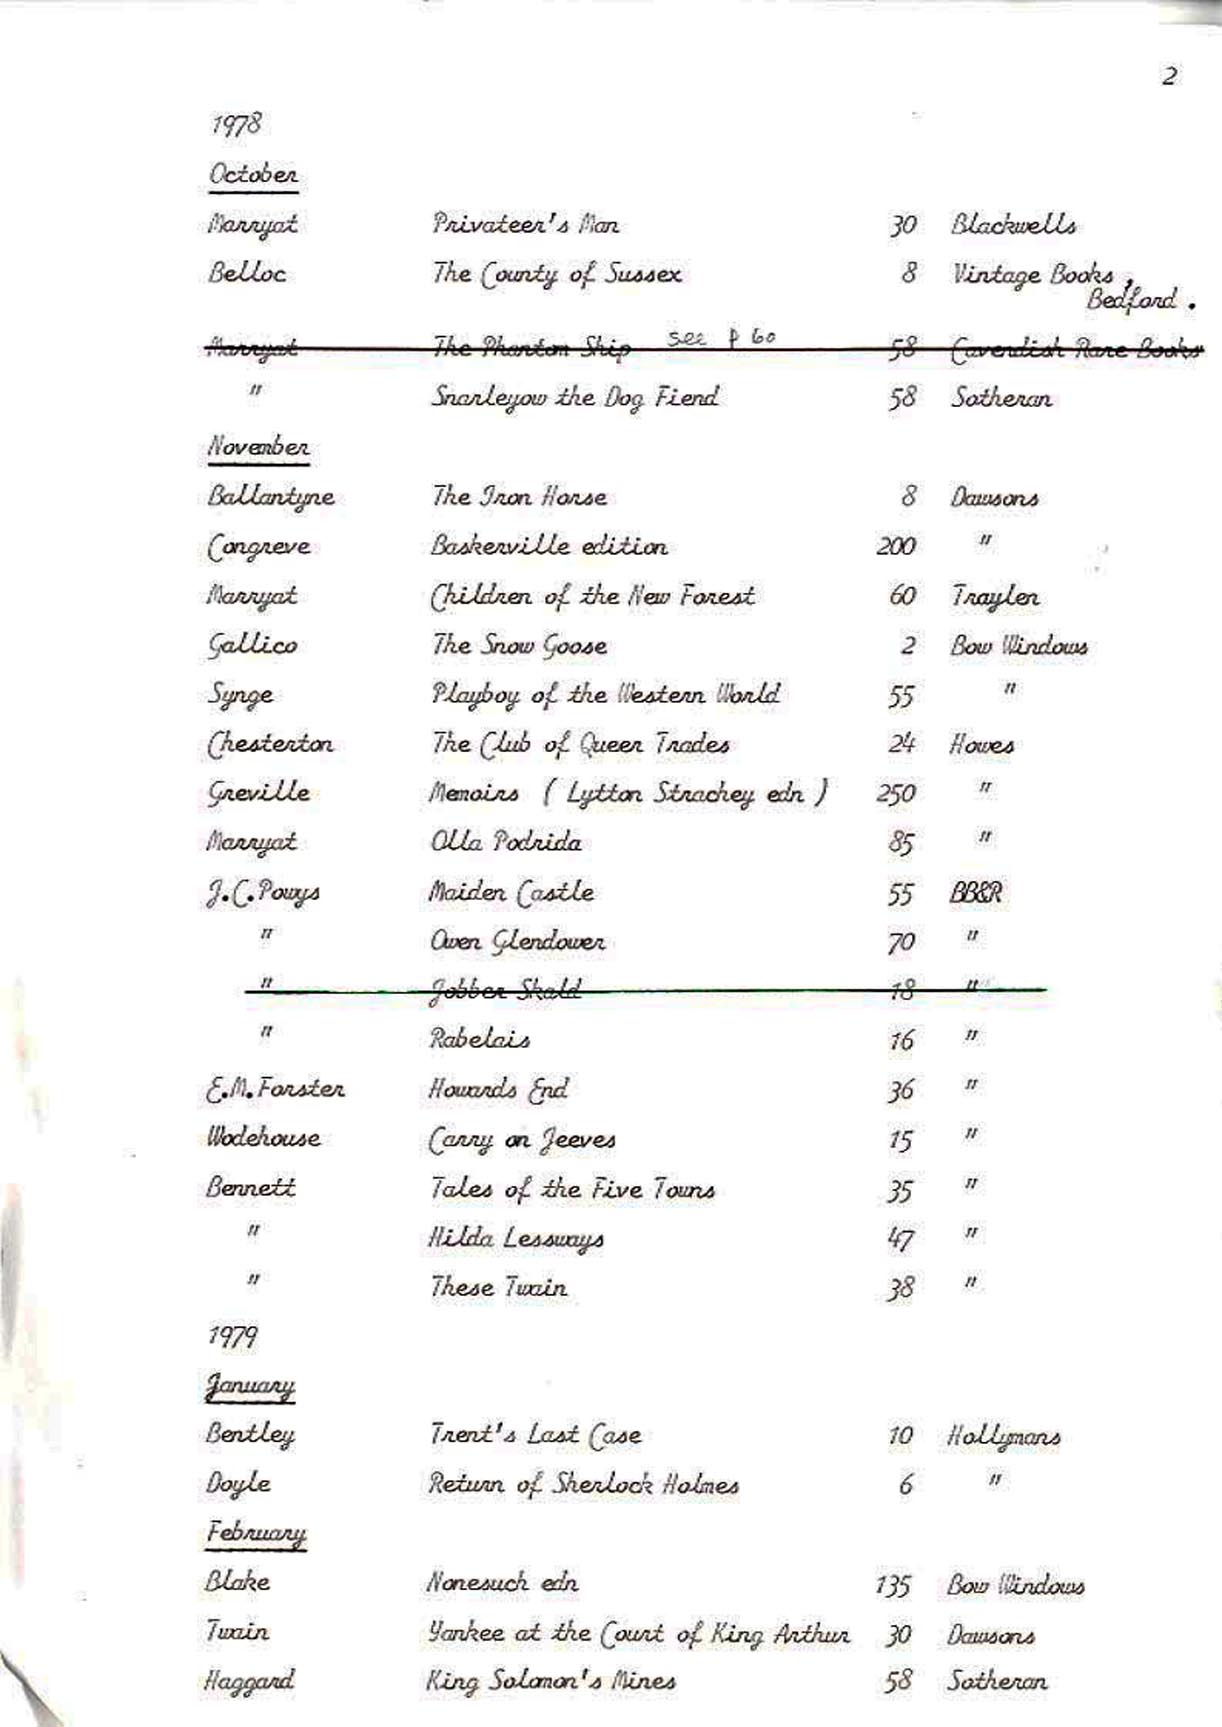 2
1978
October
Marryat Privateer's Man 30 Blackwells
Belloc The County of Sussex 8 Vintage Books,
Bedford.
Marryat The Phantom Ship see p 60 58 Cavendish Rare Books
" Snarleyow the Dog Fiend 58 Sotheran
November
Ballantyne The Iron Horse 8 Dawsons
Congreve Baskerville edition 200 "
Marryat Children of the New Forest 60 Traylen
Gallico The Snow Goose 2 Bow Windows
Synge Playboy of the Western World 55 "
Chesterton The Club of Queer Trades 24 Howes
Greville Memoirs (Lytton Strachey edn) 250 "
Marryat Olla Podrida 85 "
J.C. Powys Maiden Castle 55 BB&R
" Owen Glendower 70 "
" Jobber Skald 18 "
" Rabelais 16 "
E.M. Forster Howards End 36 "
Wodehouse Carry on Jeeves 15 "
Bennett Tales of the Five Towns 35 "
" Hilda Lessways 47 "
" These Twain 38 "
1979
January
Bentley Trent's Last Case 10 Hollymans
Doyle Return of Sherlock Holmes 6 "
February
Blake Nonesuch edn 135 Bow Windows
Twain Yankee at the Court of King Arthur 30 Dawsons
Haggard King Solomon's Mines 58 Sotheran